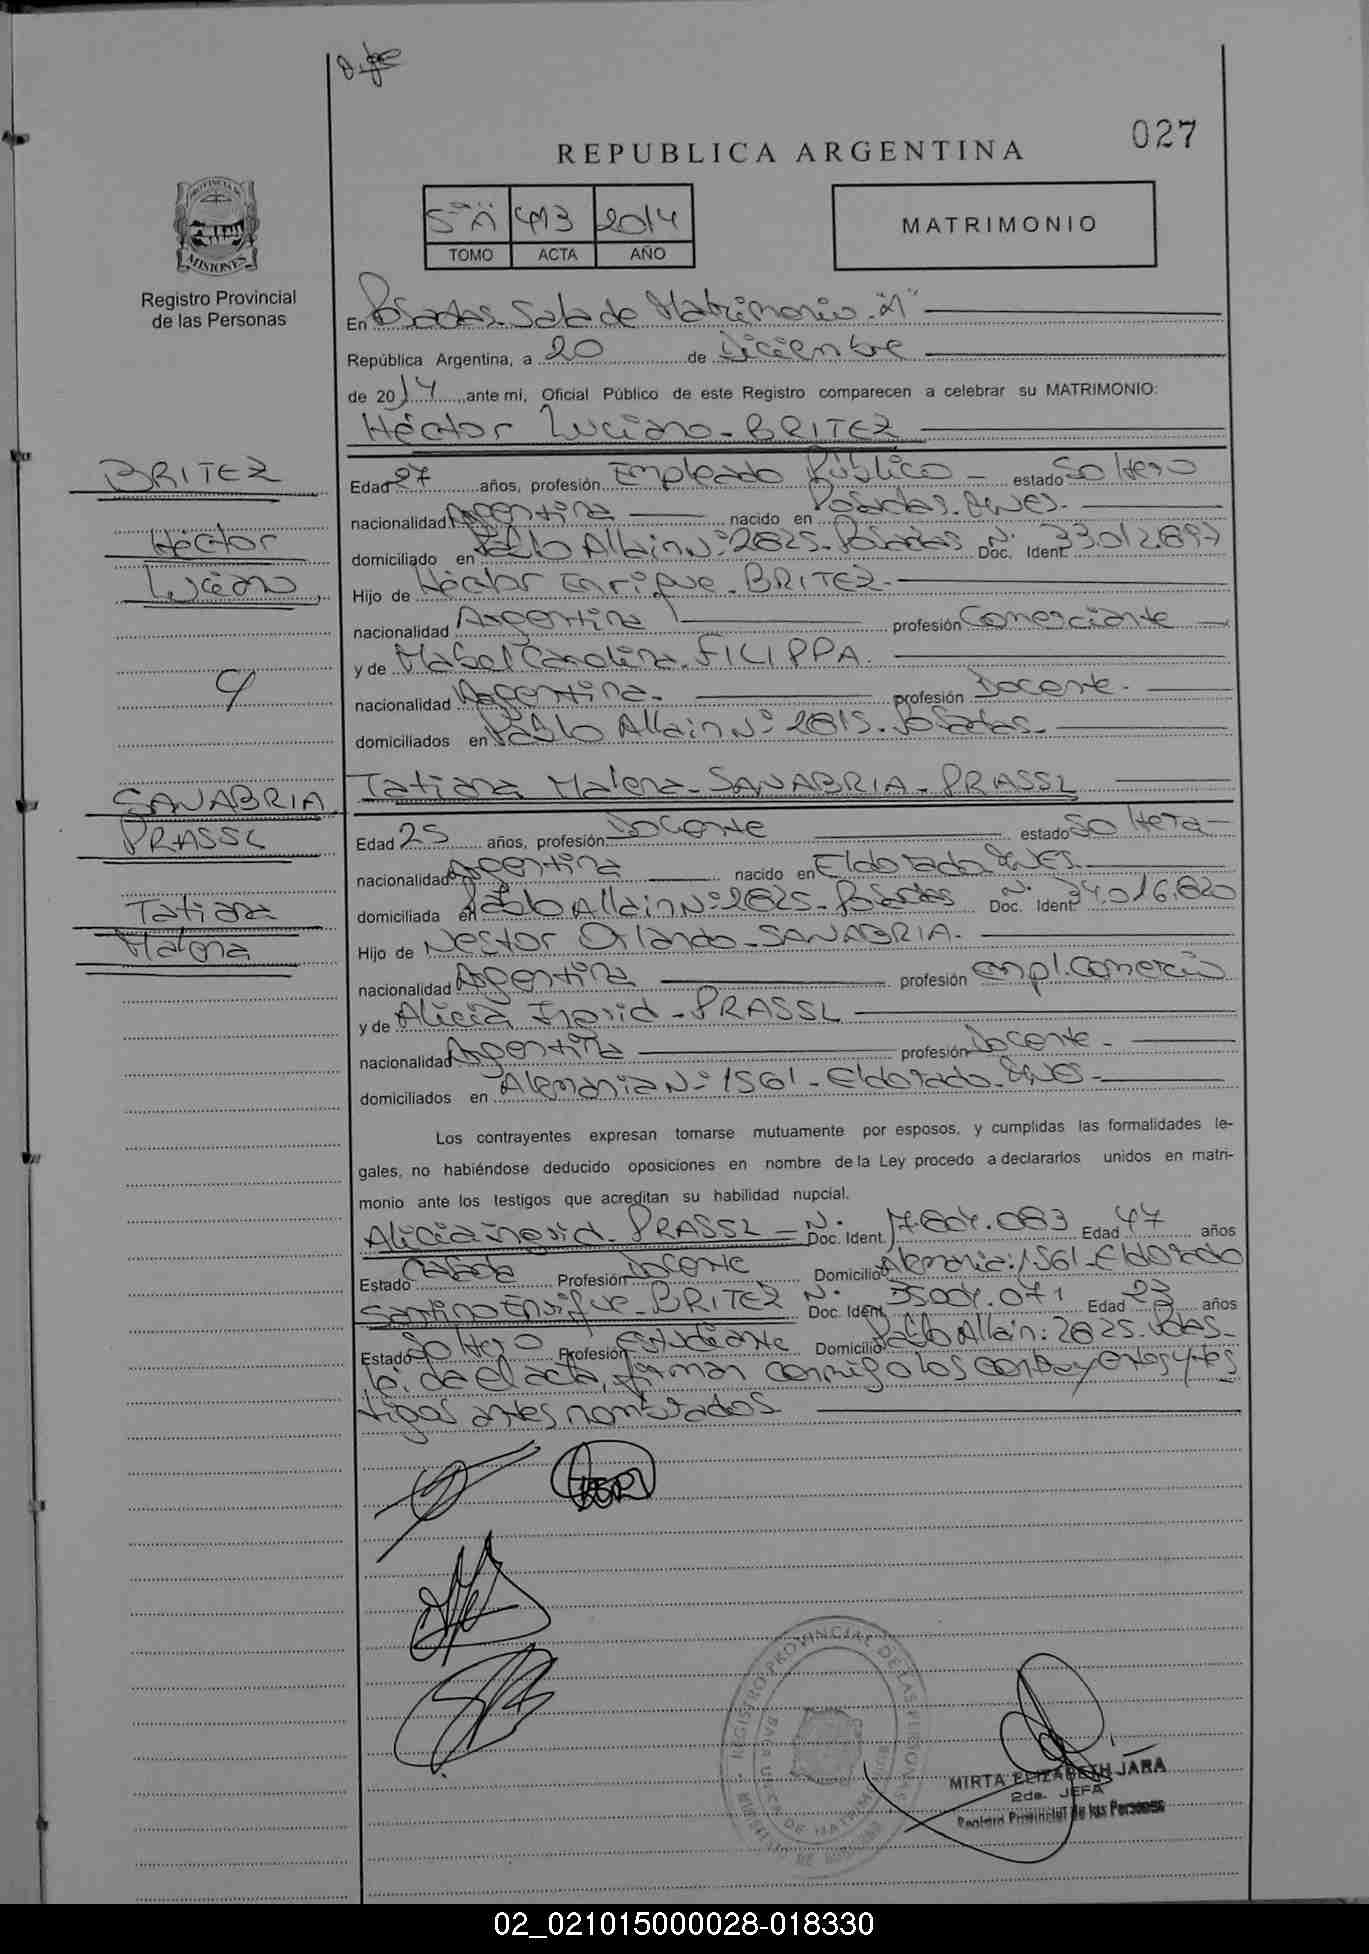 027
REPUBLICA ARGENTINA
5º "A" 413 2014
TOMO ACTA AÑO
MATRIMONIO
PROVINCIA DE
MISIONES
Registro Provincial
de las Personas
En Posadas. Sala de Matrimonio. "A"
República Argentina, a 20 de Diciembre
de 2014, ante mi, Oficial Público de este Registro comparecen a celebrar su MATRIMONIO:
Héctor Luciano - BRITEZ
BRITEZ
Héctor
Luciano
c/
SANABRIA
PRASSL
Tatiana
Malena
Edad 27 años, profesión Empleado Público - estado Soltero
nacionalidad Argentina nacido en Posadas. Mnes.
domiciliado en Pablo Allain Nº 2825. Posadas Nº Doc. Ident. 33.012.897
Hijo de Héctor Enrique - BRITEZ -
nacionalidad Argentina profesión Comerciante
y de Mabel Carolina. FILIPPA.
nacionalidad Argentina. profesión Docente.
domiciliados en Pablo Allain Nº 2815. Posadas.
Tatiana Malena - SANABRIA - PRASSL
Edad 25 años, profesión Docente estado Soltera
nacionalidad Argentina nacido en Eldorado. Mnes.
domiciliada en Pablo Allain Nº 2825 - Posadas Nº Doc. Ident. 34.016.820
Hijo de Nestor Orlando - SANABRIA.
nacionalidad Argentina profesión empl. Comercio
y de Alicia Ingrid - PRASSL
nacionalidad Argentina profesión Docente -
domiciliados en Alemania Nº 1561 - Eldorado. Mnes.
Los contrayentes expresan tomarse mutuamente por esposos, y cumplidas las formalidades le-
gales, no habiéndose deducido oposiciones en nombre de la Ley procedo a declararlos unidos en matri-
monio ante los testigos que acreditan su habilidad nupcial.
Alicia Ingrid - PRASSL - Nº Doc. Ident. 17.804.083 Edad 47 años
Estado Casada Profesión Docente Domicilio Alemania: 1561 - Eldorado
Santino Enrique - BRITEZ Nº Doc. Ident. 35.004.071 Edad 23 años
Estado Soltero Profesión Estudiante Domicilio Pablo Allain: 2825. Pdas.
leída el acta, firman conmigo los contrayentes y tes
tigos antes nombrados
REGISTRO PROVINCIAL DE LAS PERSONAS
MIRTA ELIZABETH JARA
2da. JEFA
Registro Provincial de las Personas
02_021015000028-018330